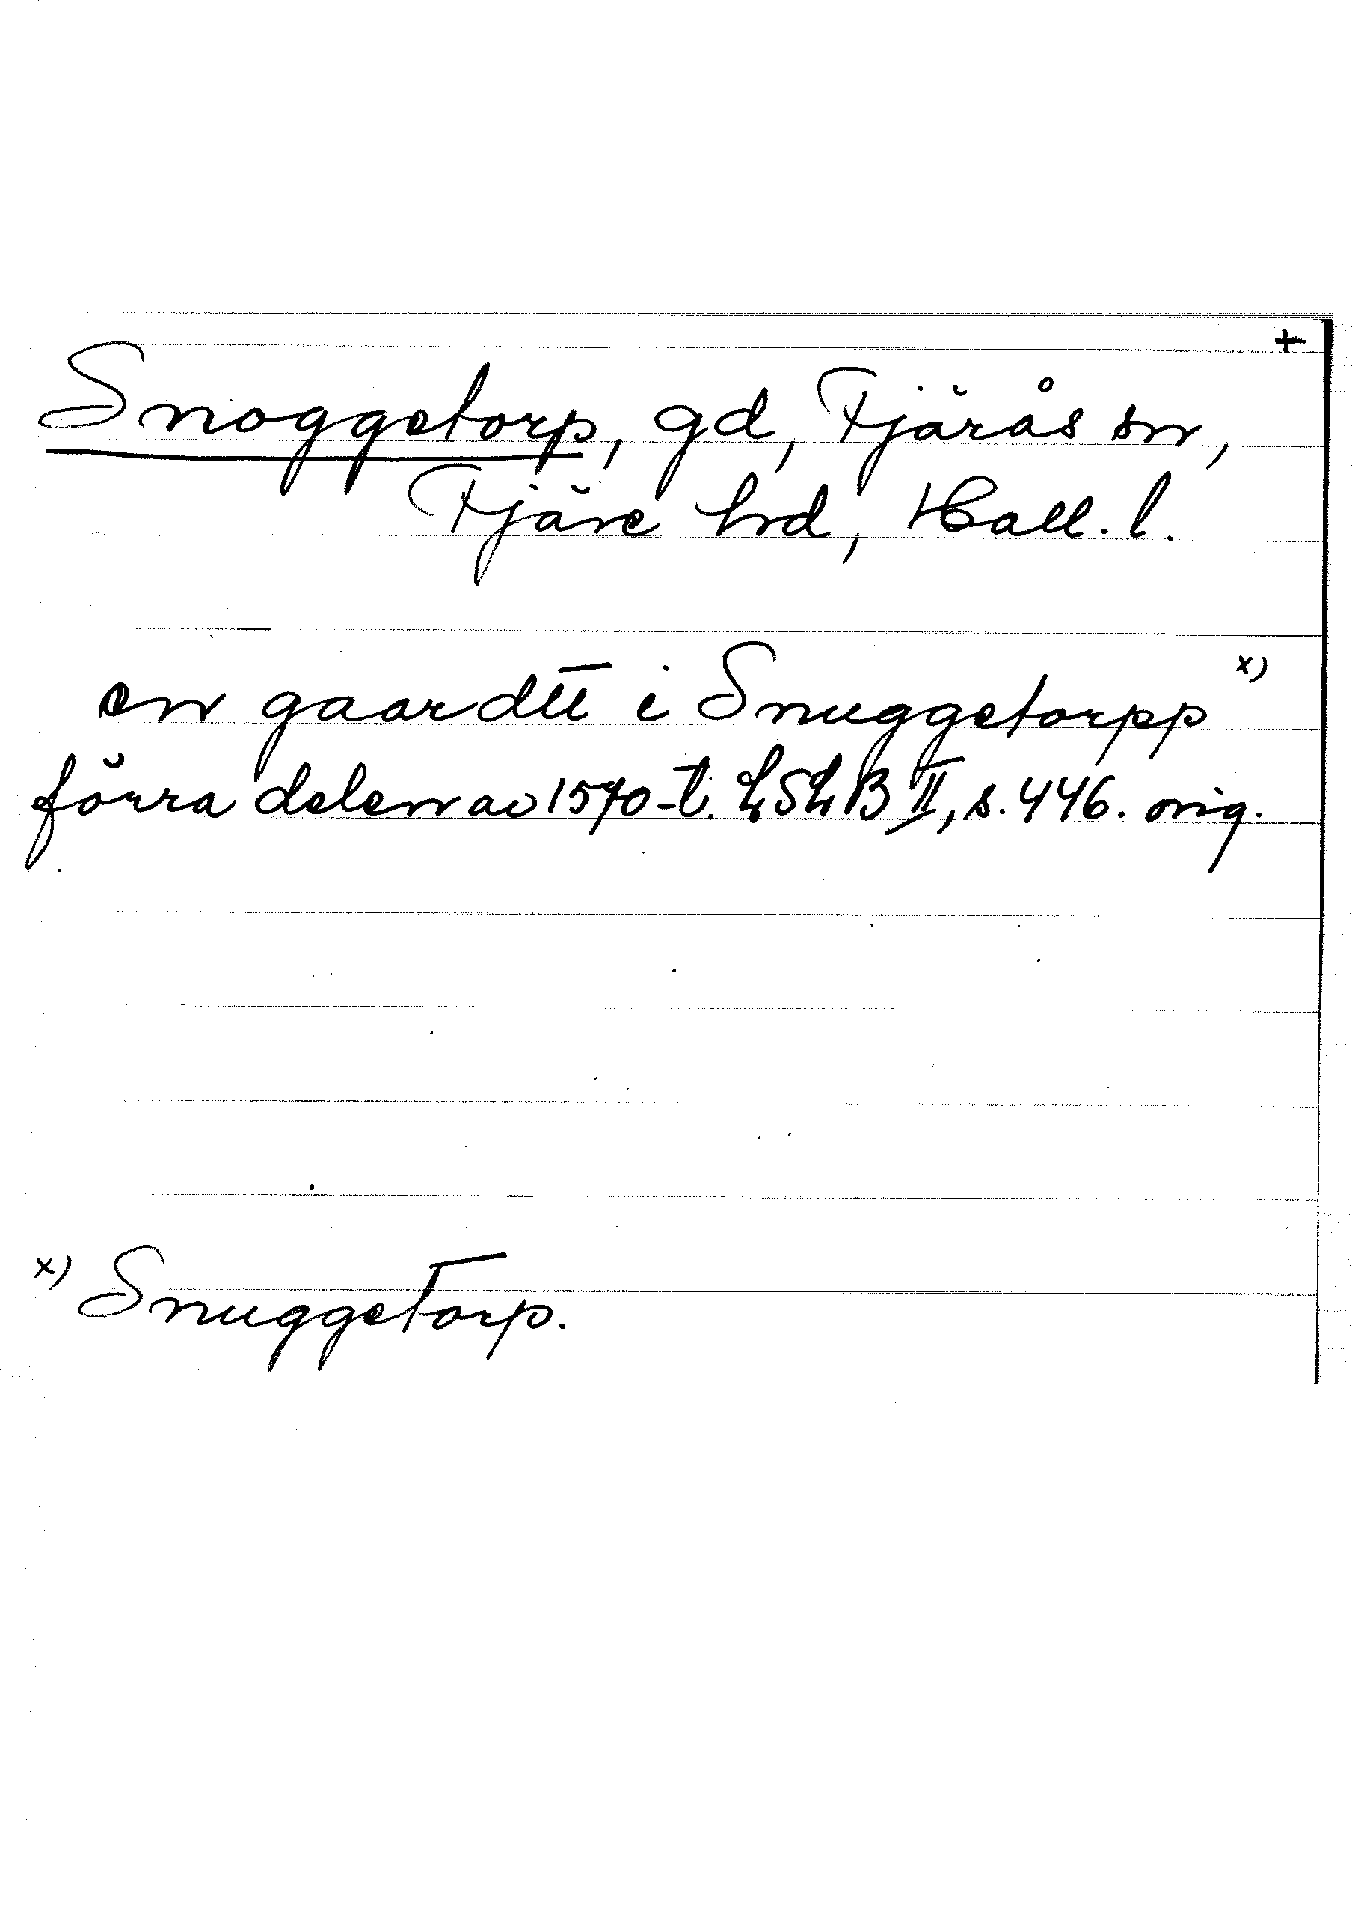 +
Snoggetorp, gd, Fjärås sn,
Fjäre hrd, Hall. l.
en gaardtt i Snuggetorpp x)
förra delen av 1570-t. LSLB II, s. 446. orig.
x) Snuggetorp.